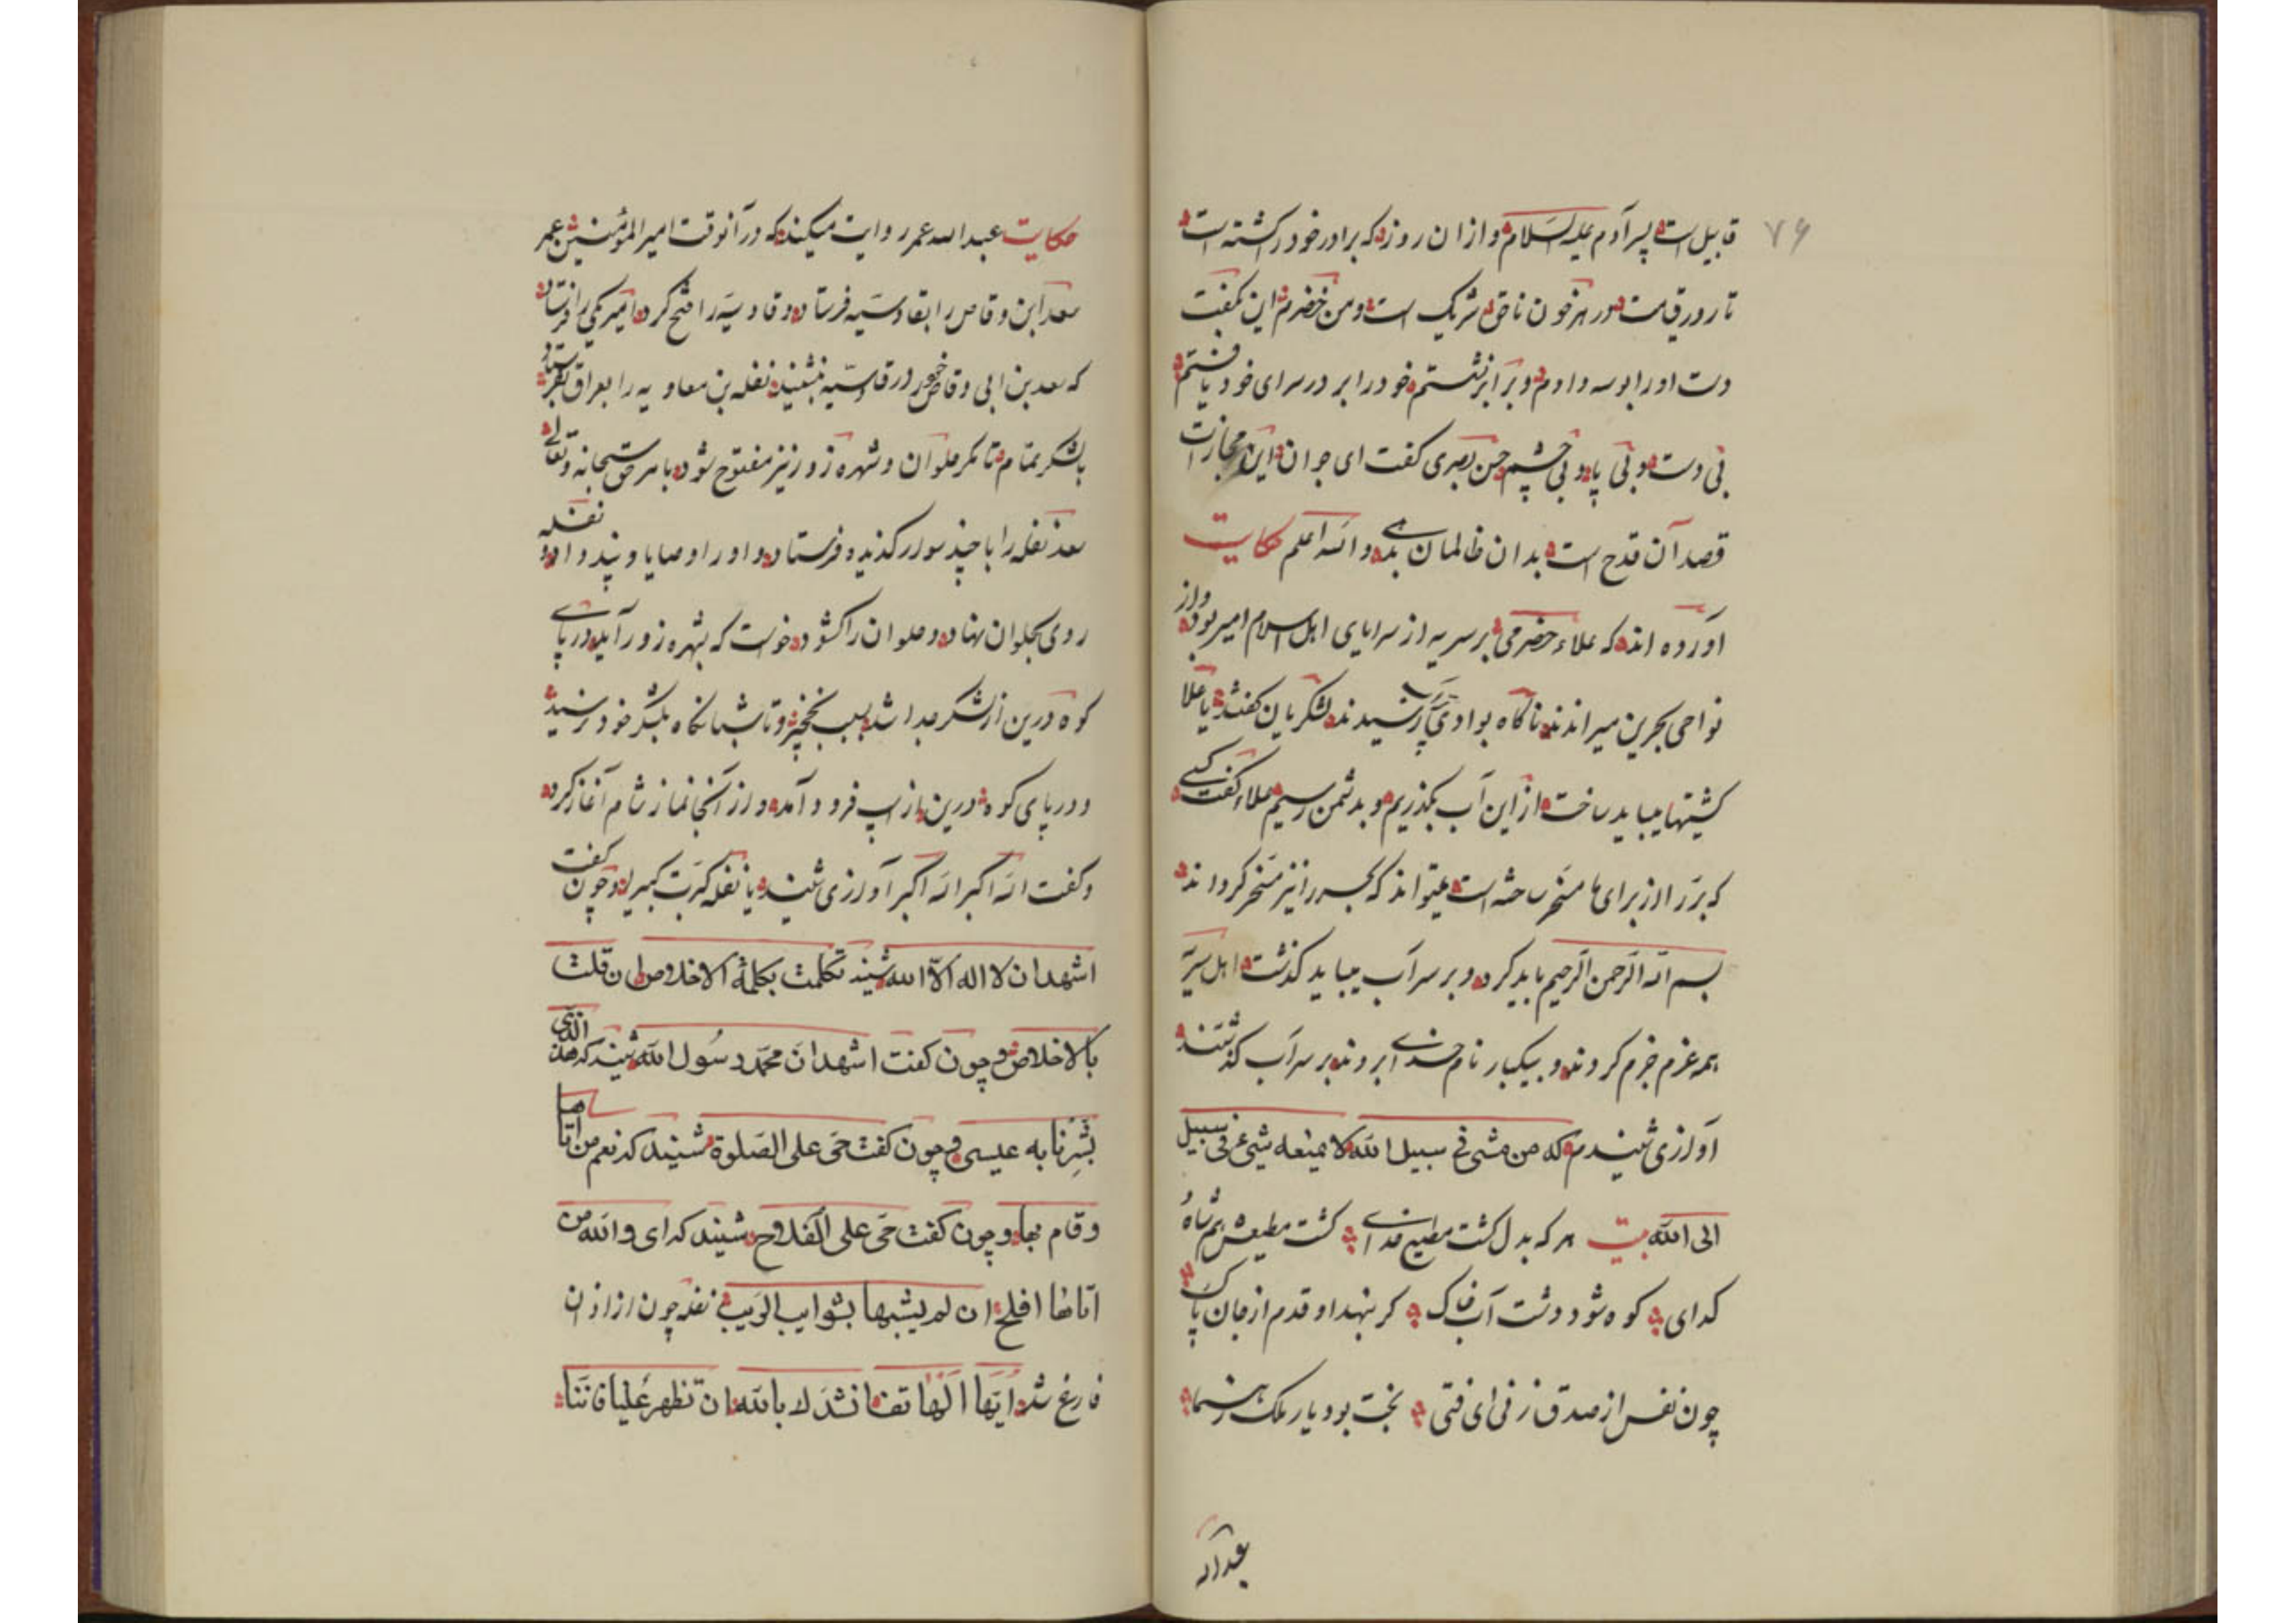 ۷۶
قابیل است پسر آدم علیه السلام و از ان روز که برادر خود را کشته است
تا روز قیامت در هر خون ناحق شریک است و من خضرم این بگفت
دست او را بوسه دادم و بر ابر نشستم خود را بر در سرای خود یافتم
بی دست و بی پا و بی چشم حسن بصری کفت ای جوان این مجازات
قصد آن قدح است بدان ظالمان بد والله اعلم حکایت
آورده اند که علاء حضرمی بر سریه از سرایای اهل اسلام امیر بود و از
نواحی بحرین میراندند ناکاه بوادی پر آب رسیدند لشکریان کفتند یا علا
کشتیها میباید ساخت از این آب بکذریم و بدشمن رسیم علاء کفت کسی
که بر را از برای ما مسخر ساخته است میتواند که بحر را نیز مسخر کرداند
بسم الله الرحمن الرحیم باید کرد و بر سر آب میباید کذشت اهل سریه
همه عزم جزم کردند و بیکبار نام خدای بردند بر سر آب کذشتند
آوازی شنیدم که من مشی فی سبیل الله لا یمنعه شیء عن فی سبیل
الی الله بیت هر که بدل کشت مطیع خدای کشت مطیعش هم شاه و
کدای کوه شود دشت آب خاک کر بنهد او قدم از جان پاک
چون نفس از صدق زنی ای فتی بخت بود یار ملک رهنما
عبدالله
حکایت عبدالله عمر روایت میکند که در آنوقت امیر المؤمنین عمر
سعد ابن وقاص را بقادسیه فرستاد و قادسیه را فتح کرد امیر یکی را فرستاد
که سعد بن ابی وقاص خود در قادسیه بنشیند نفله بن معاویه را بعراق بفرستد
با لشکر تمام تا مکر حلوان و شهره زور نیز مفتوح شود بامر حق سبحانه و تعالی
سعد نفله را با چند سوار کذیده فرستاد و او را وصایا و پند داد و نفله
روی بحلوان نهاد و حلوان را کشود خواست که بشهره زور آید در پای
کوه درین از لشکر جدا شد بسبب نخجیر و تا شبانکاه بلشکر خود نرسید
و در پای کوه درین از اسپ فرود آمد و در آنجا نماز شام آغاز کرد
و کفت الله اکبر الله اکبر آوازی شنید یا نفله کبرت کبیرا و چون کفت
اشهد ان لا اله الا الله شنید تکلمت بکلمة الاخلاص ان قلت
بالاخلاص و چون کفت اشهد ان محمد رسول الله شنید که هذا الذی
بشرنا به عیسی و چون کفت حی علی الصلوة شنید که نعم من اتاها
وقام بها و چون کفت حی علی الفلاح شنید که ای والله من
اتاها افلح ان لم یشبها بشوایب الریب نفله چون از اذان
فارغ شد ایها الهاتف انشدک بالله ان تظهر علینا فاننا